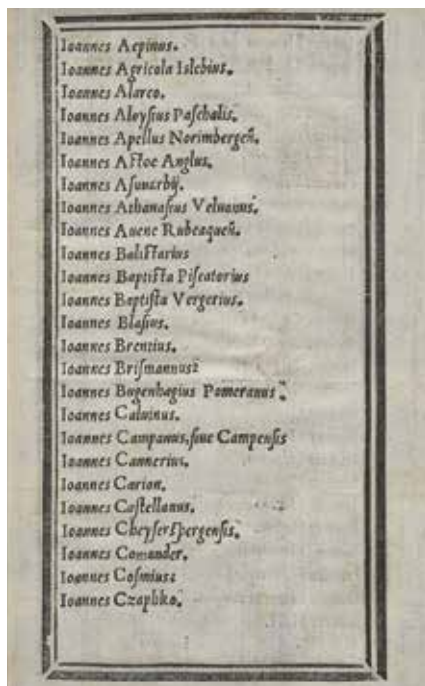 Ioannes Aepinus.
Ioannes Agricola Islebius.
Ioannes Alarco.
Ioannes Aloyſius Paſchalis.
Ioannes Apellus Norimbergeñ.
Ioannes Aſtoe Anglus.
Ioannes Aſuuarbij.
Ioannes Athanaſius Veluanus.
Ioannes Auene Rubeaqueñ.
Ioannes Baliſtarius
Ioannes Baptiſta Piſcatorius
Ioannes Baptiſta Vergerius.
Ioannes Blaſius.
Ioannes Brentius.
Ioannes Briſmannus:
Ioannes Bugenhagius Pomeranus.
Ioannes Caluinus.
Ioannes Campanus, ſiue Campenſis
Ioannes Cannerius.
Ioannes Carion.
Ioannes Caſtellanus.
Ioannes Cheyſerſpergenſis.
Ioannes Comander.
Ioannes Coſmius:
Ioannes Czaphko.